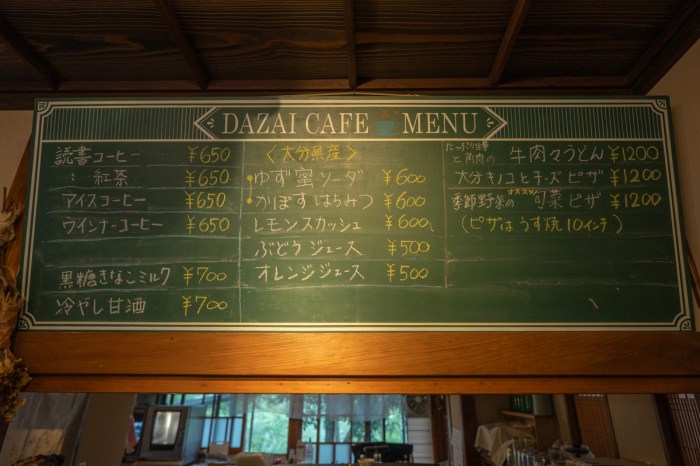 DAZAI CAFE MENU
読書コーヒー ¥650
〃 紅茶 ¥650
アイスコーヒー ¥650
ウインナーコーヒー ¥650
黒糖きなこミルク ¥700
冷やし甘酒 ¥700
〈大分県産〉
ゆず蜜ソーダ ¥600
かぼすはちみつ ¥600
レモンスカッシュ ¥600
ぶどうジュース ¥500
オレンジジュース ¥500
と角肉の 牛肉々うどん ¥1200
大分キノコとチーズピザ ¥1200
オススメ
季節野菜の旬菜ピザ ¥1200
(ピザはうす焼10インチ)